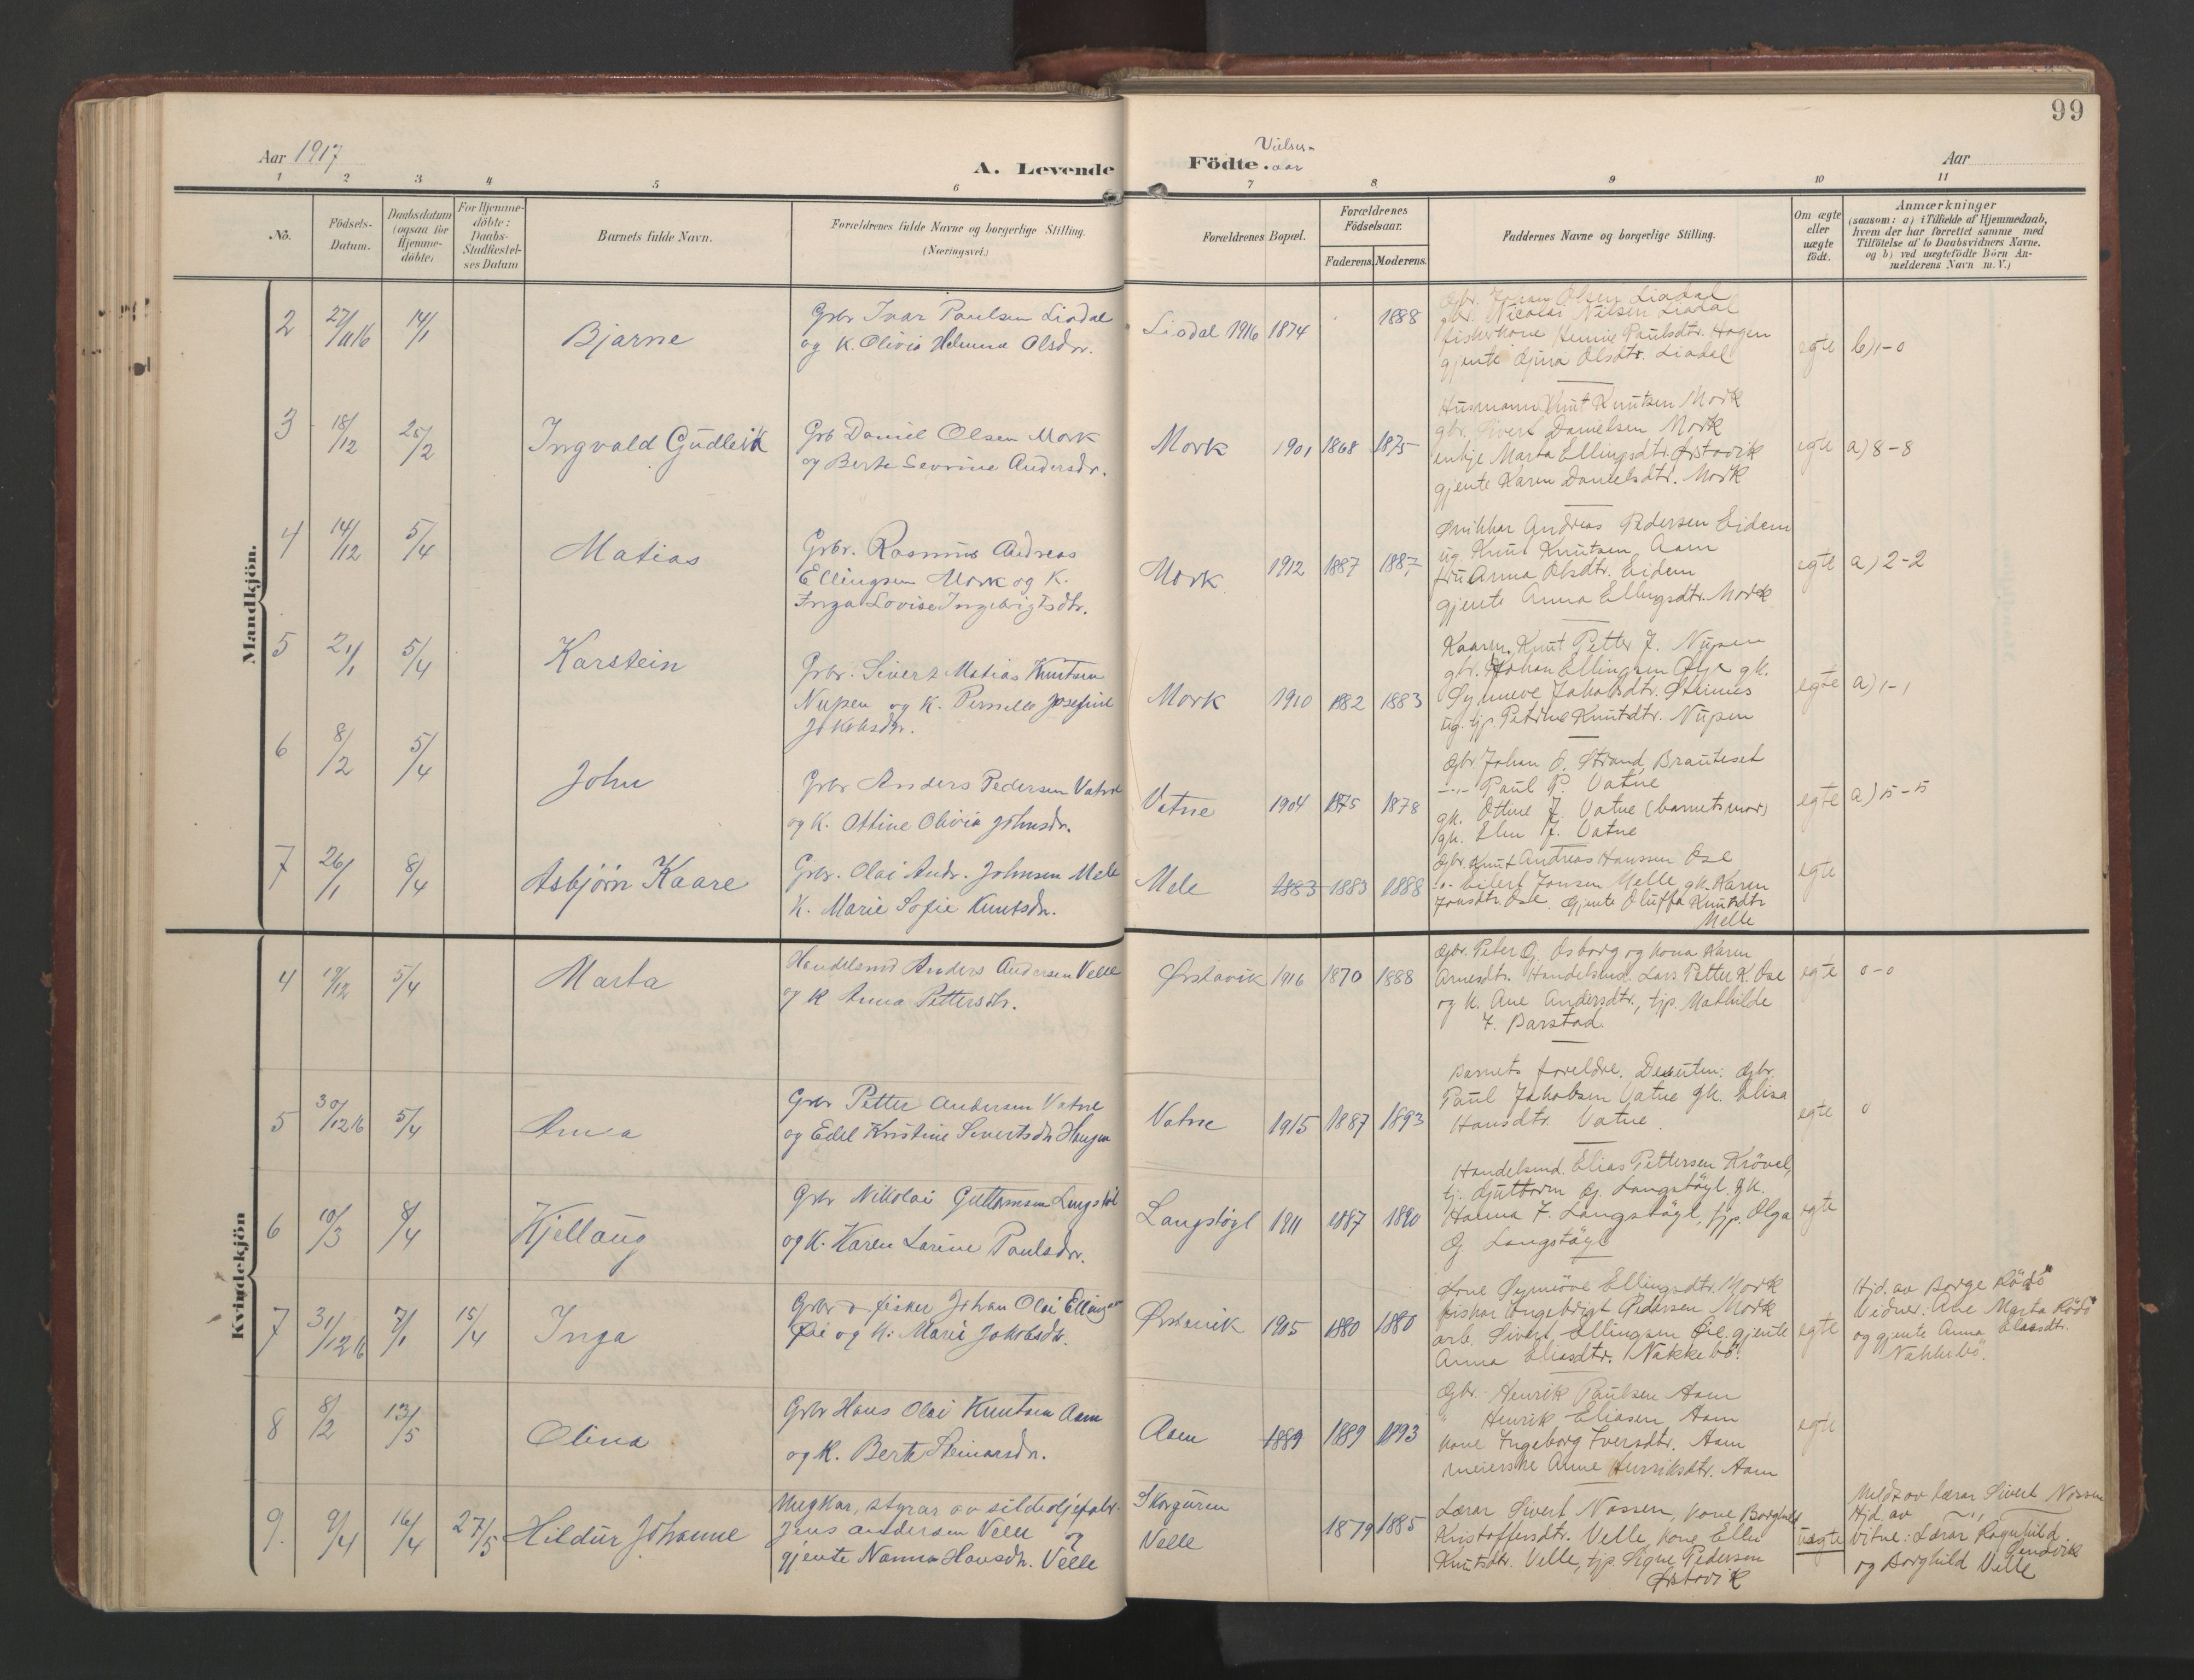 99
Aar 1917
A. Levende
Födte.
Vielses-
aar
Aar
1 2 3 4 5 6 7 8 9 10 11
No.
Födsels-
Datum.
Daabsdatum
(ogsaa for
Hjemme-
döbte)
For Hjemme-
döbte:
Daabs-
Stadfæstel-
ses Datum
Barnets fulde Navn.
Forældrenes fulde Navne og borgerlige Stilling.
(Næringsvei.)
Forældrenes Bopæl.
Forældrenes
Födselsaar.
Faderens. Moderens.
Faddernes Navne og borgerlige Stilling.
Om ægte
eller
uægte
födt.
Anmærkninger
(saasom: a) i Tilfælde af Hjemmedaab,
hvem der har forrettet samme med
Tilföielse af to Daabsvidners Navne,
og b) ved uægtefödte Börn An-
melderens Navn m. V.)
Mandkjön.
2 27/11 16 14/1 Bjarne
Grbr Ivar Paulsen Liadal
og K. Olivia Helmine Olsdr.
Liadal 1916 1874 1888
Gbr. Johan Olsen Liadal
gbr. Nicolai Nilsen Liadal
fiskerkone Paulsdtr. Hagen
gjente Gjina Olsdtr. Liadal
egte b) 1-0
3 18/12 25/2 Ingvald Gudleik
Grb Daniel Olsen Mork
og Berte Sevrine Andersdr.
Mork 1901 1868 1875
Husmann Knut Knutsen Mork
gbr. Sivert Danielsen Mork
enkje Marta Ellingsdtr. Ørstavik
gjente Karen Danielsdtr. Mork
egte a) 8-8
4 14/12 5/4 Matias
Grbr. Rasmus Andreas
Ellingsen Mork og K.
Inga Lovise Ingebrigtsdtr.
Mork 1912 1887 1887
Snikkar Andreas Pedersen Eidem
ug. Knut Knutsen Aam
fru Anna Olsdtr. Eidem
gjente Anna Ellingsdtr. Mork
egte a) 2-2
5 21/1 5/4 Karstein
Grbr. Sivert Matias Knutsen
Nupen og K. Pernille Josefine
Jakobsdr.
Mork 1910 1882 1883
Knut Petter J. Nupen
gbr. Johan Ellingsen Øye gk.
Synneve Jakobsdtr. Steinnes
ug. tjp. Petrine Knutdtr. Nupen
egte a) 1-1
6 8/2 5/4 John
Grbr Anders Pedersen Vatne
og K. Ottine Olivia Johnsdr.
Vatne 1904 1875 1878
Gbr Johan O. Strand, Brauteset
-"- Paul P. Vatne
gk. Ottine J. Vatne (barnets mor)
gk. Elen J. Vatne
egte a) 5-5
7 26/1 8/4 Asbjørn Kaare
Grbr. Olai Andr. Johnsen Mele
K. Marie Sofie Knutsdr.
Mele 1883 1883 1888
Gbr. Knut Andreas Hanssen Ose
-"- Eilert Jonsen Melle gk. Karen
Jonsdtr. Ose. Gjente Oluffa Knutsdtr
Melle
egte
Kvindekjön
4 19/12 5/4 Marta
Handelsmd Anders Andersen Velle
og K Anna Pettersdtr.
Ørstavik 1916 1870 1888
Gbr. Peter G. Osborg og kona Karen
Arnesdtr. Handelsmd. Lars Petter K. Ose
og K. Ane Andersdtr., tjp. Mathilde
J. Barstad.
egte 0-0
5 30/12 16 5/4 Anna
Grbr Petter Andersen Vatne
og Edel Kristine Sivertsdtr Haugen
Vatne 1915 1887 1893
Barnets foreldre. Desuten: Gbr.
Paul Jakobsen Vatne gk. Elisa
Hansdtr. Vatne.
egte 0
6 10/3 8/4 Kjellaug
Grbr Nikolai Guttormsen Langstöl
og K. Karen Larine Paulsdtr.
Langstøyl 1911 1887 1890
Handelsmd. Elias Pettersen Krövel,
tj. Guttorm G. Langstöyl. gk.
Hanna J. Langstöyl, tjp. Olga
G. Langstöyl
egte
7 31/12 16 7/1 15/4 Inga
Grbr o fisker Johan Olai Ellingsen
Øie og K: Marie Jakobsdtr.
Ørstavik 1905 1880 1880
Kone Synnöve Ellingsdtr. Mork
fiskar Ingebrigt Pedersen Mork
arb. Sivert Ellingsen Öie. gjente
Anna Eliasdtr. Nakkebö.
egte
Hjd. av Borge Rödö
Vidner: Ane Marta Rödö
og gjente Anna Eliasdtr.
Nakkebö.
8 8/2 13/5 Olina
Grbr Hans Olai Knutsen Aam
og K. Berte Steinarsdr.
Aam 1889 1889 1893
Gbr. Henrik Paulsen Aam
" Henrik Eliasen Aam
kone Ingeborg Iversdtr. Aam
meierske Anne Henriksdtr. Aam
egte
9. 9/4 16/4 27/5 Hildur Johanne
Ungkar, styrar av sildoljefabr.
Jens Andersen Velle og
gjente Nanna Hansdr. Velle
Skorguren
Velle
1879 1885
Lærar Sivert Nossen, kone Borghild
Kristoffersdtr. Velle, kone Elli
Knutsdtr. Velle, tjp. Signe Pedersen
Ørstavik
uægte
Meldt av Lærar Sivert Nossen
Hjd. av -"-
Vitne: Lærar Ragnhild
og Borghild Velle